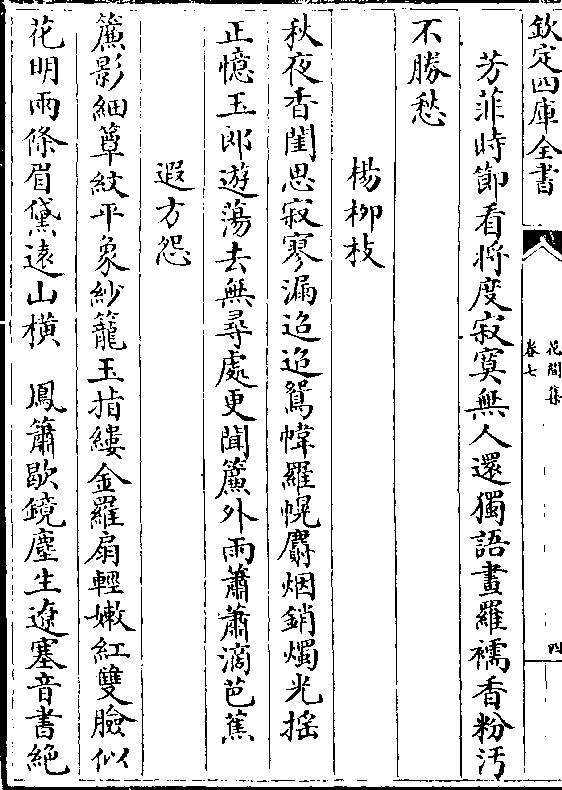 欽定四庫全書
花間集
卷七
四
芳菲時節看將度寂寞無人還獨語畫羅襦香粉汚
不勝愁
楊柳枝
秋夜香閨思寂寥漏迢迢鴛幃羅幌麝烟銷燭光揺
正憶玉郎遊蕩去無尋處更聞簾外雨蕭蕭滴芭蕉
遐方怨
簾影細簟紋平象紗籠玉指縷金羅扇輕嫩紅雙臉似
花明兩條眉黛逺山横　鳳簫歇鏡塵生遼塞音書絶